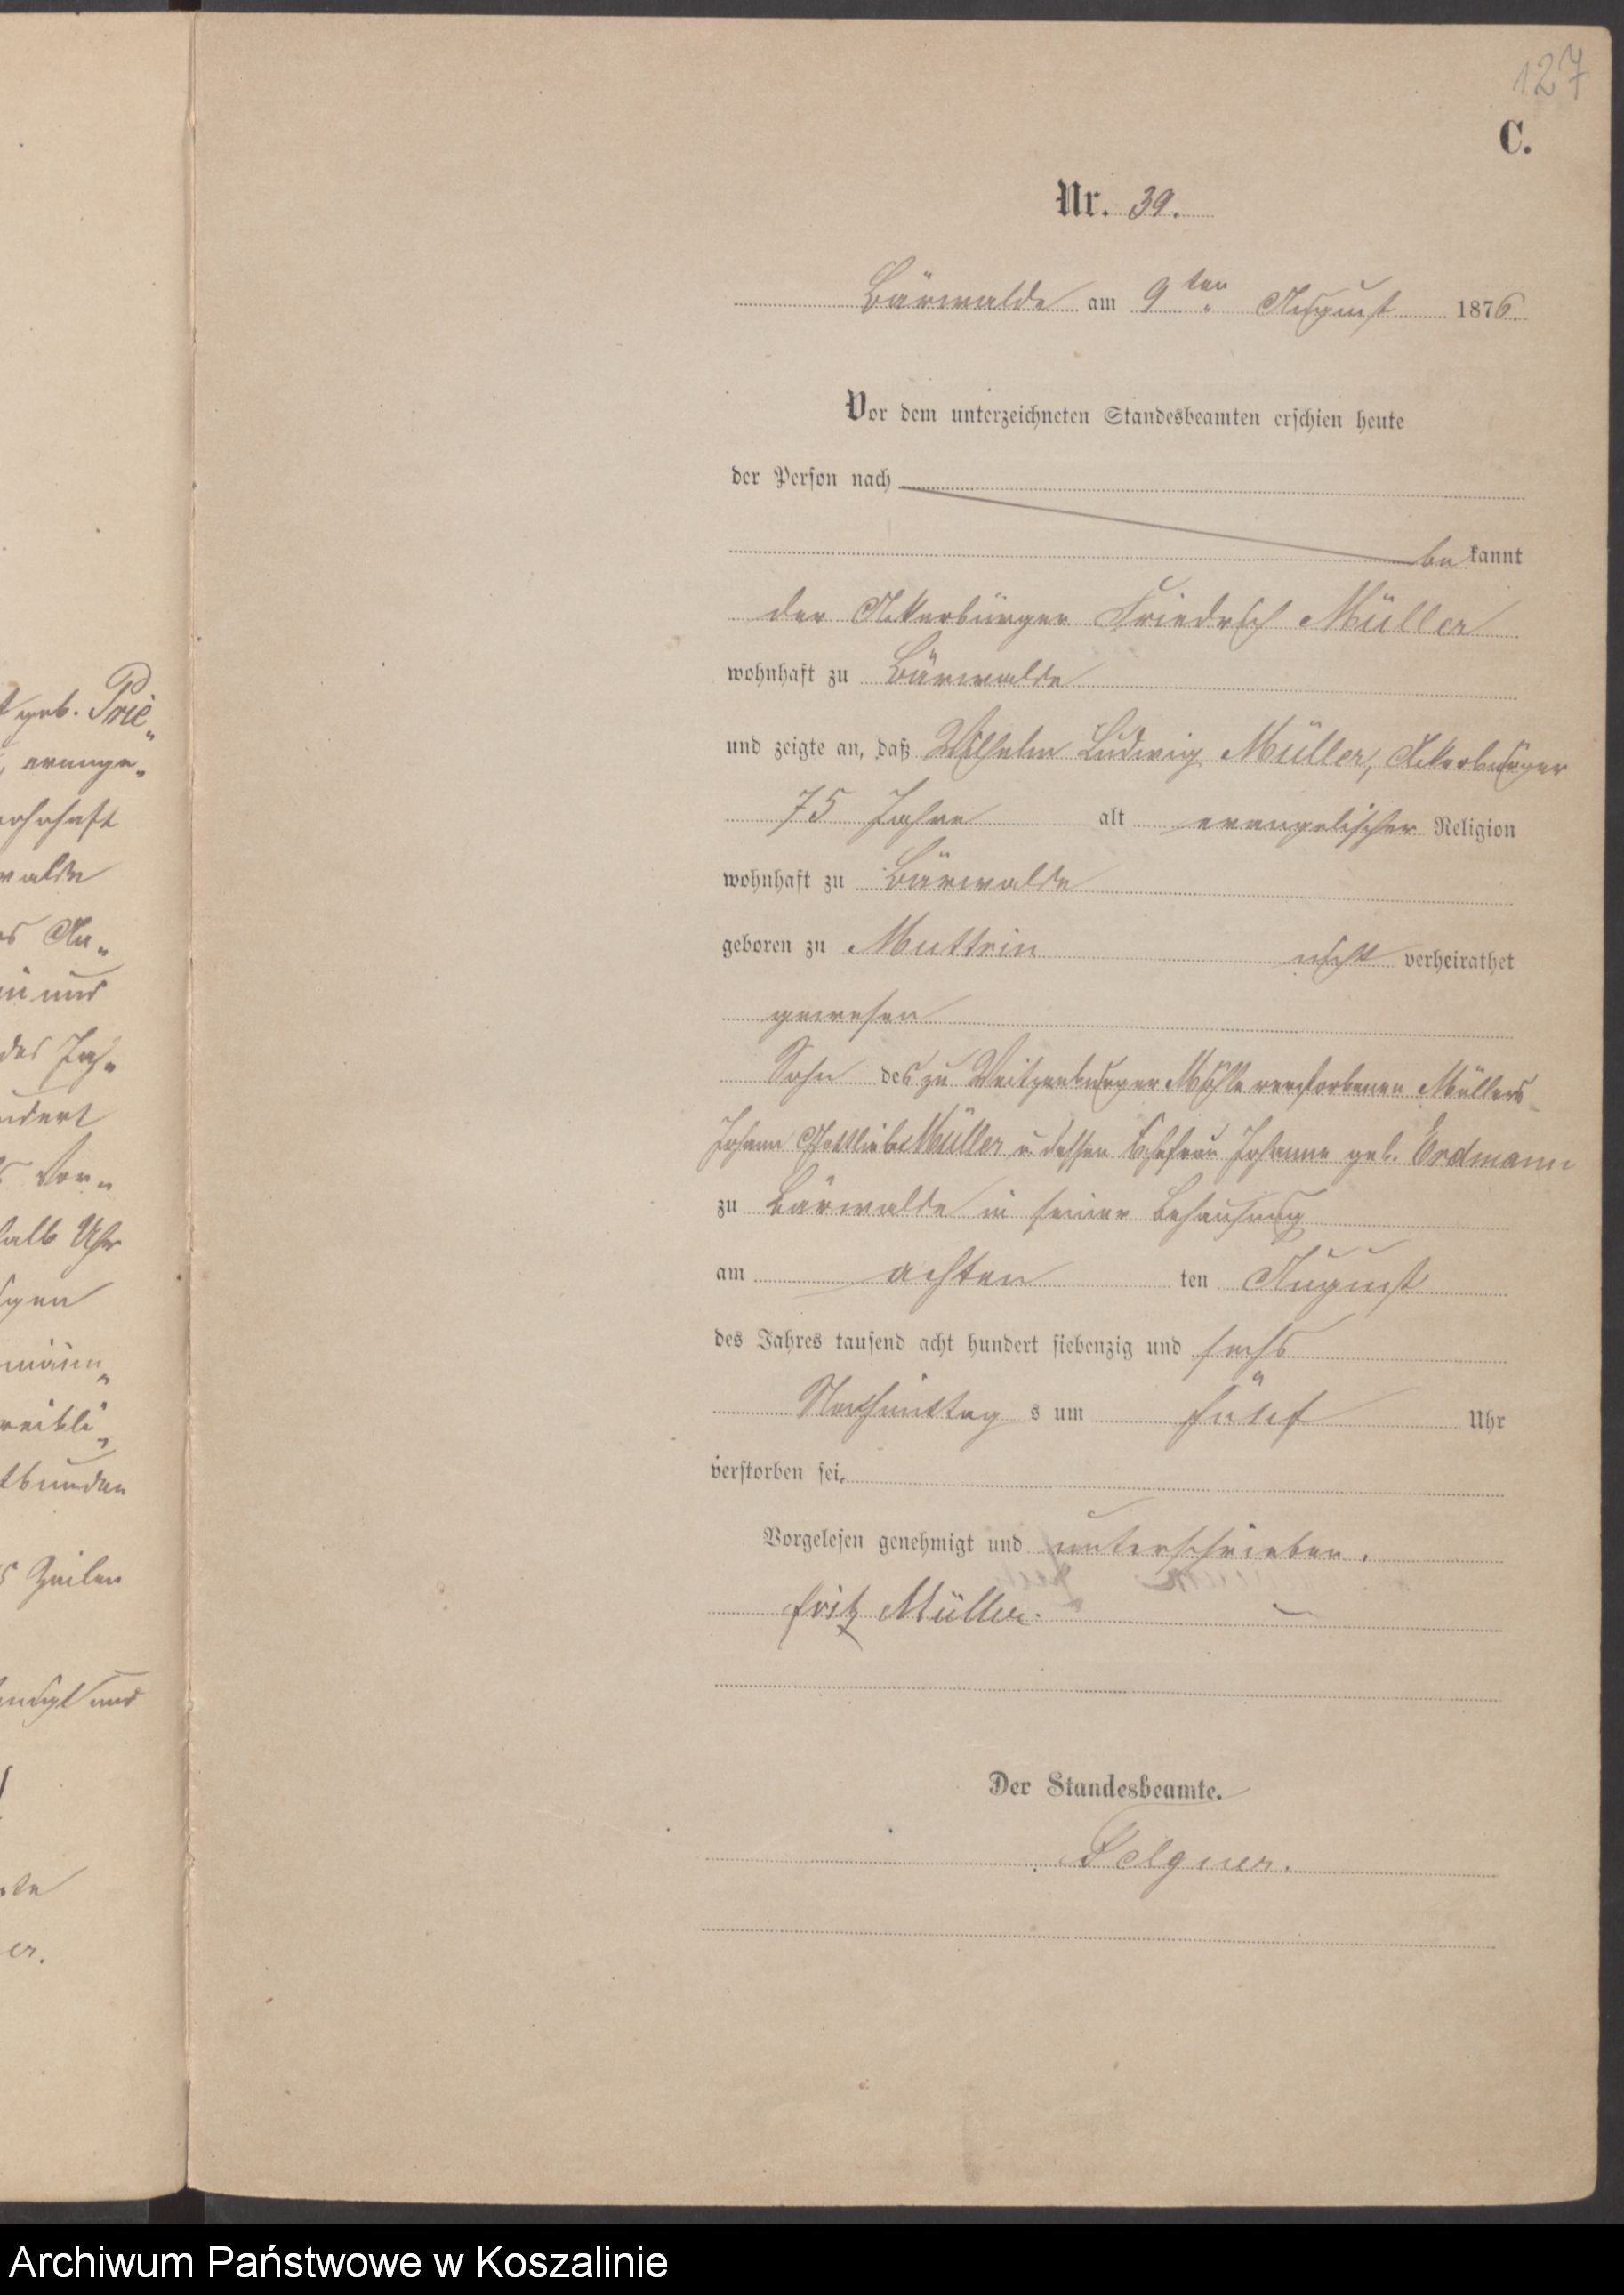 127
C.
Nr. 39.
Bärwalde am 9ten August 1876.
Vor dem unterzeichneten Standesbeamten erschien heute
der Person nach
bekannt
der Ackerbürger Friedrich Müller
wohnhaft zu Bärwalde
und zeigte an, daß Wilhelm Ludwig Müller, Ackerbürger
75 Jahre alt evangelischer Religion
wohnhaft zu Bärwalde
geboren zu Muttrin nicht verheirathet
gewesen
Sohn des zu Weitzenburger Mühle verstorbenen Müllers
Johann Gottlieb Müller u. dessen Ehefrau Johanne geb. Erdmann
zu Bärwalde in seiner Behausung
am achten ten August
des Jahres tausend acht hundert siebenzig und sechs
Nachmittag s um fünf Uhr
verstorben sei.
Vorgelesen genehmigt und unterschrieben.
Fritz Müller.
Der Standesbeamte.
Felgner.
geb. Prie„
evange„
wohnhaft
walde
und
des Jah„
hundert
Vor„
halb Uhr
männ„
weibli„
tbunden
5 Zeilen
und
er.
Archiwum Państwowe w Koszalinie